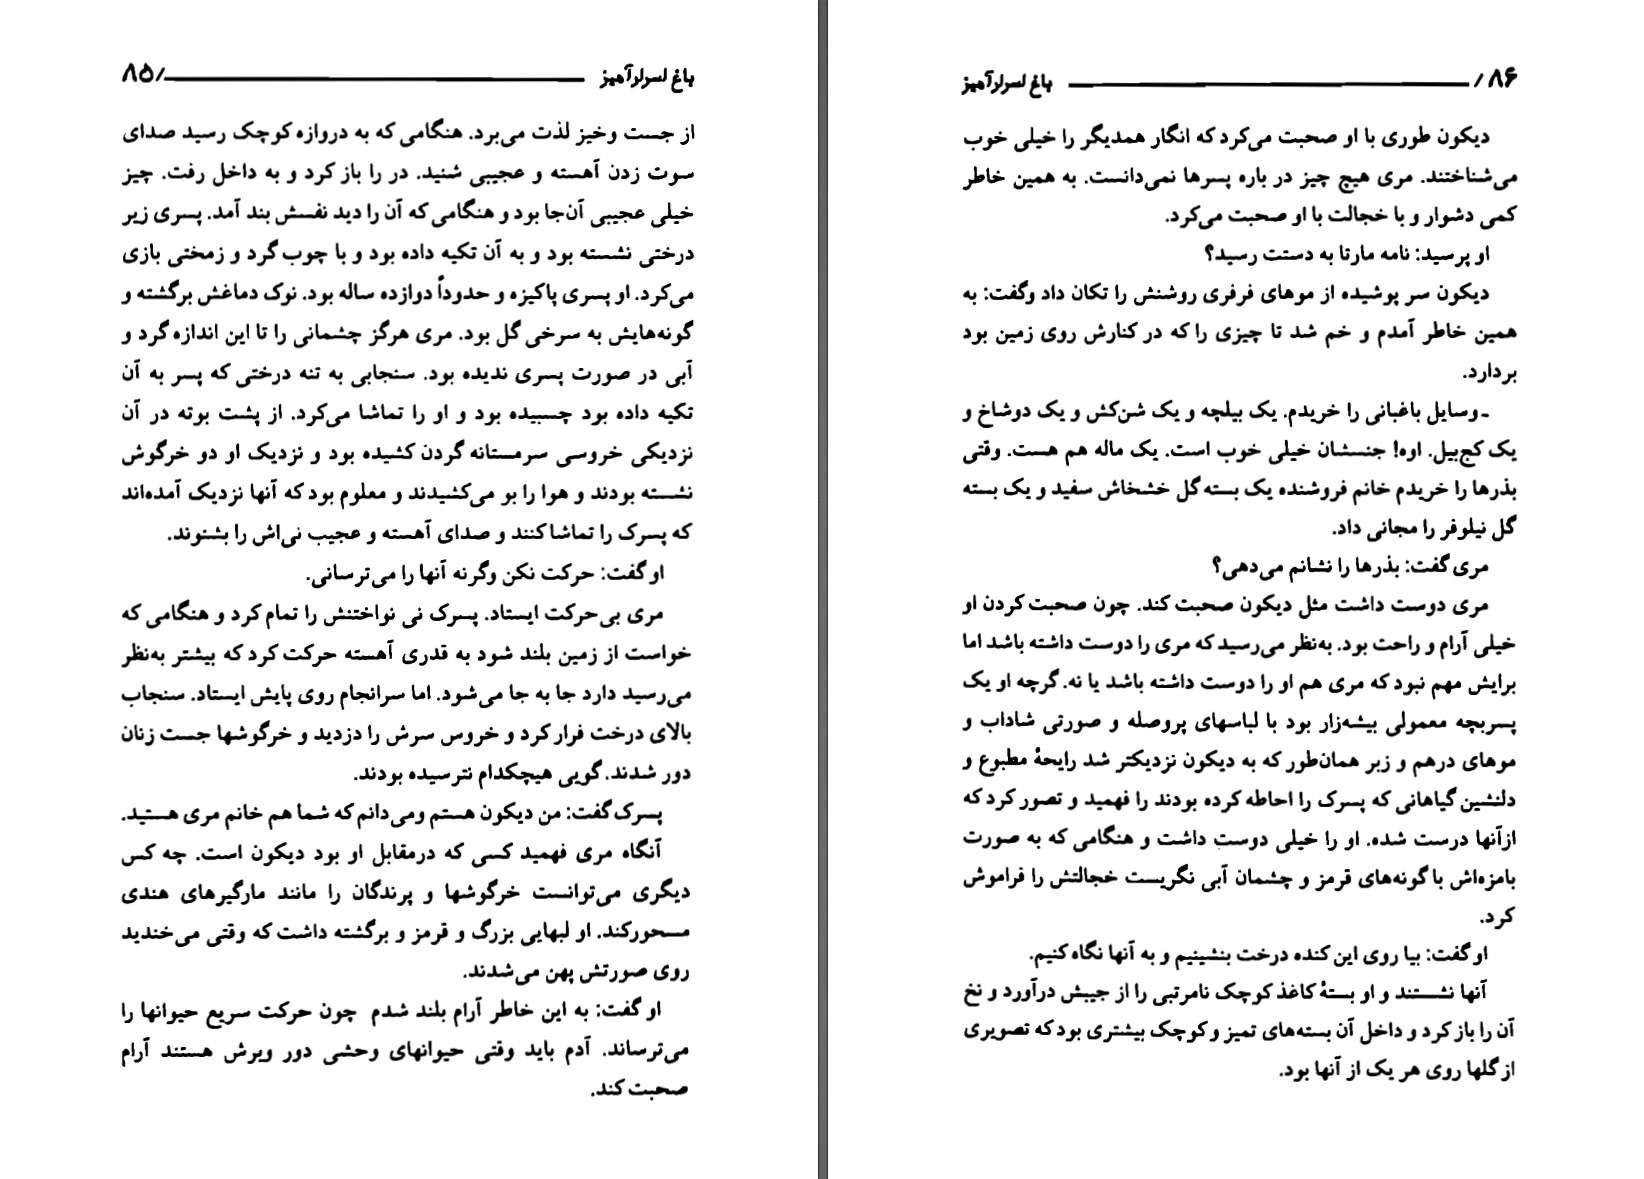 باغ اسرارآمیز /۸۵
از جست وخیز لذت می‌برد. هنگامی که به دروازه کوچک رسید صدای
سوت زدن آهسته و عجیبی شنید. در را باز کرد و به داخل رفت. چیز
خیلی عجیبی آن‌جا بود و هنگامی که آن را دید نفسش بند آمد. پسری زیر
درختی نشسته بود و به آن تکیه داده بود و با چوب گرد و زمختی بازی
می‌کرد. او پسری پاکیزه و حدوداً دوازده ساله بود. نوک دماغش برگشته و
گونه‌هایش به سرخی گل بود. مری هرگز چشمانی را تا این اندازه گرد و
آبی در صورت پسری ندیده بود. سنجابی به تنه درختی که پسر به آن
تکیه داده بود چسبیده بود و او را تماشا می‌کرد. از پشت بوته در آن
نزدیکی خروسی سرمستانه گردن کشیده بود و نزدیک او دو خرگوش
نشسته بودند و هوا را بو می‌کشیدند و معلوم بود که آنها نزدیک آمده‌اند
که پسرک را تماشا کنند و صدای آهسته و عجیب نی‌اش را بشنوند.
او گفت: حرکت نکن وگرنه آنها را می‌ترسانی.
مری بی‌حرکت ایستاد. پسرک نی نواختنش را تمام کرد و هنگامی که
خواست از زمین بلند شود به قدری آهسته حرکت کرد که بیشتر به‌نظر
می‌رسید دارد جا به جا می‌شود. اما سرانجام روی پایش ایستاد. سنجاب
بالای درخت فرار کرد و خروس سرش را دزدید و خرگوشها جست زنان
دور شدند. گویی هیچکدام نترسیده بودند.
پسرک گفت: من دیکون هستم ومی‌دانم که شما هم خانم مری هستید.
آنگاه مری فهمید کسی که درمقابل او بود دیکون است. چه کس
دیگری می‌توانست خرگوشها و پرندگان را مانند مارگیرهای هندی
مسحورکند. او لبهایی بزرگ و قرمز و برگشته داشت که وقتی می‌خندید
روی صورتش پهن می‌شدند.
او گفت: به این خاطر آرام بلند شدم چون حرکت سریع حیوانها را
می‌ترساند. آدم باید وقتی حیوانهای وحشی دور وبرش هستند آرام
صحبت کند.
۸۶/ باغ اسرارآمیز
دیکون طوری با او صحبت می‌کرد که انگار همدیگر را خیلی خوب
می‌شناختند. مری هیچ چیز در باره پسرها نمی‌دانست. به همین خاطر
کمی دشوار و با خجالت با او صحبت می‌کرد.
او پرسید: نامه مارتا به دستت رسید؟
دیکون سر پوشیده از موهای فرفری روشنش را تکان داد وگفت: به
همین خاطر آمدم و خم شد تا چیزی را که در کنارش روی زمین بود
بردارد.
ـ وسایل باغبانی را خریدم. یک بیلچه و یک شن‌کش و یک دوشاخ و
یک کج‌بیل. اوه! جنسشان خیلی خوب است. یک ماله هم هست. وقتی
بذرها را خریدم خانم فروشنده یک بسته گل خشخاش سفید و یک بسته
گل نیلوفر را مجانی داد.
مری گفت: بذرها را نشانم می‌دهی؟
مری دوست داشت مثل دیکون صحبت کند. چون صحبت کردن او
خیلی آرام و راحت بود. به‌نظر می‌رسید که مری را دوست داشته باشد اما
برایش مهم نبود که مری هم او را دوست داشته باشد یا نه. گرچه او یک
پسربچه معمولی بیشه‌زار بود با لباسهای پروصله و صورتی شاداب و
موهای درهم و زبر همان‌طور که به دیکون نزدیکتر شد رایحهٔ مطبوع و
دلنشین گیاهانی که پسرک را احاطه کرده بودند را فهمید و تصور کرد که
ازآنها درست شده. او را خیلی دوست داشت و هنگامی که به صورت
بامزه‌اش با گونه‌های قرمز و چشمان آبی نگریست خجالتش را فراموش
کرد.
او گفت: بیا روی این کنده درخت بنشینیم و به آنها نگاه کنیم.
آنها نشستند و او بستهٔ کاغذ کوچک نامرتبی را از جیبش درآورد و نخ
آن را باز کرد و داخل آن بسته‌های تمیز و کوچک بیشتری بود که تصویری
از گلها روی هر یک از آنها بود.